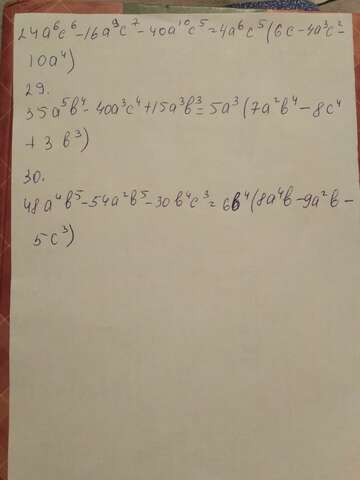 24a⁶c⁶-16a⁹c⁷-40a¹⁰c⁵=4a⁶c⁵(6c-4a³c²-
10a⁴)
29.
35a⁵b⁴-40a³c⁴+15a³b³=5a³(7a²b⁴-8c⁴
+3b³)
30.
48a⁴b⁵-54a²b⁵-30b⁴c³=6b⁴(8a⁴b-9a²b-
5c³)